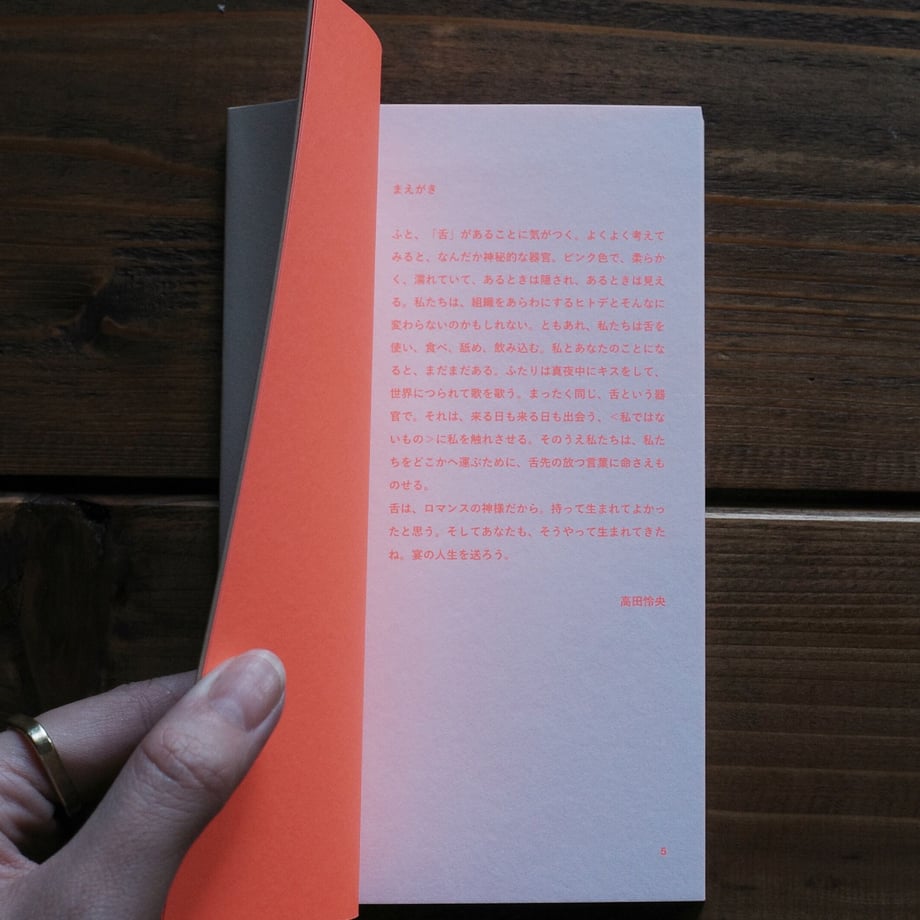 まえがき
ふと、「舌」があることに気がつく。よくよく考えて
みると、なんだか神秘的な器官。ピンク色で、柔らか
く、濡れていて、あるときは隠され、あるときは見え
る。私たちは、組織をあらわにするヒトデとそんなに
変わらないのかもしれない。ともあれ、私たちは舌を
使い、食べ、舐め、飲み込む。私とあなたのことにな
ると、まだまだある。ふたりは真夜中にキスをして、
世界につられて歌を歌う。まったく同じ、舌という器
官で。それは、来る日も来る日も出会う、＜私ではな
いもの＞に私を触れさせる。そのうえ私たちは、私た
ちをどこかへ運ぶために、舌先の放つ言葉に命さえも
のせる。
舌は、ロマンスの神様だから。持って生まれてよかっ
たと思う。そしてあなたも、そうやって生まれてきた
ね。宴の人生を送ろう。
高田怜央
5